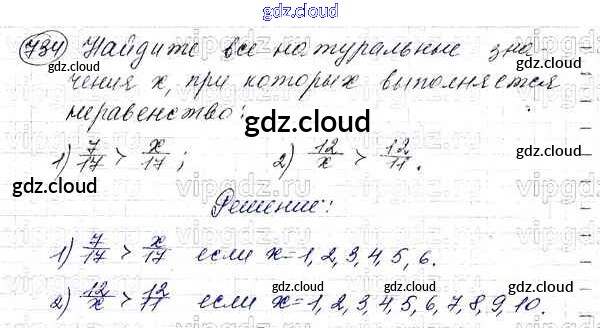 gdz.cloud
734 Найдите все натуральные зна-
чения x, при которых выполняется
неравенство:
1) 7/17 > x/17; 2) 12/x > 12/11.
Решение:
1) 7/17 > x/17 если x=1, 2, 3, 4, 5, 6.
2) 12/x > 12/11 если x=1, 2, 3, 4, 5, 6, 7, 8, 9, 10.
gdz.cloud
gdz.cloud
gdz.cloud
gdz.cloud
gdz.cloud
gdz.cloud
gdz.cloud
gdz.cloud